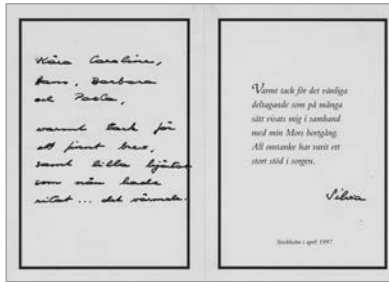 Kära Caroline,
Hans, Barbara
och Paola,
varmt tack för
ett fint brev,
samt lilla hjärtat
som nån hade
ritat ... det värmde.
Varmt tack för det vänliga
deltagande som på många
sätt visats mig i samband
med min Mors bortgång.
All omtanke har varit ett
stort stöd i sorgen.
Silvia
Stockholm i april 1997